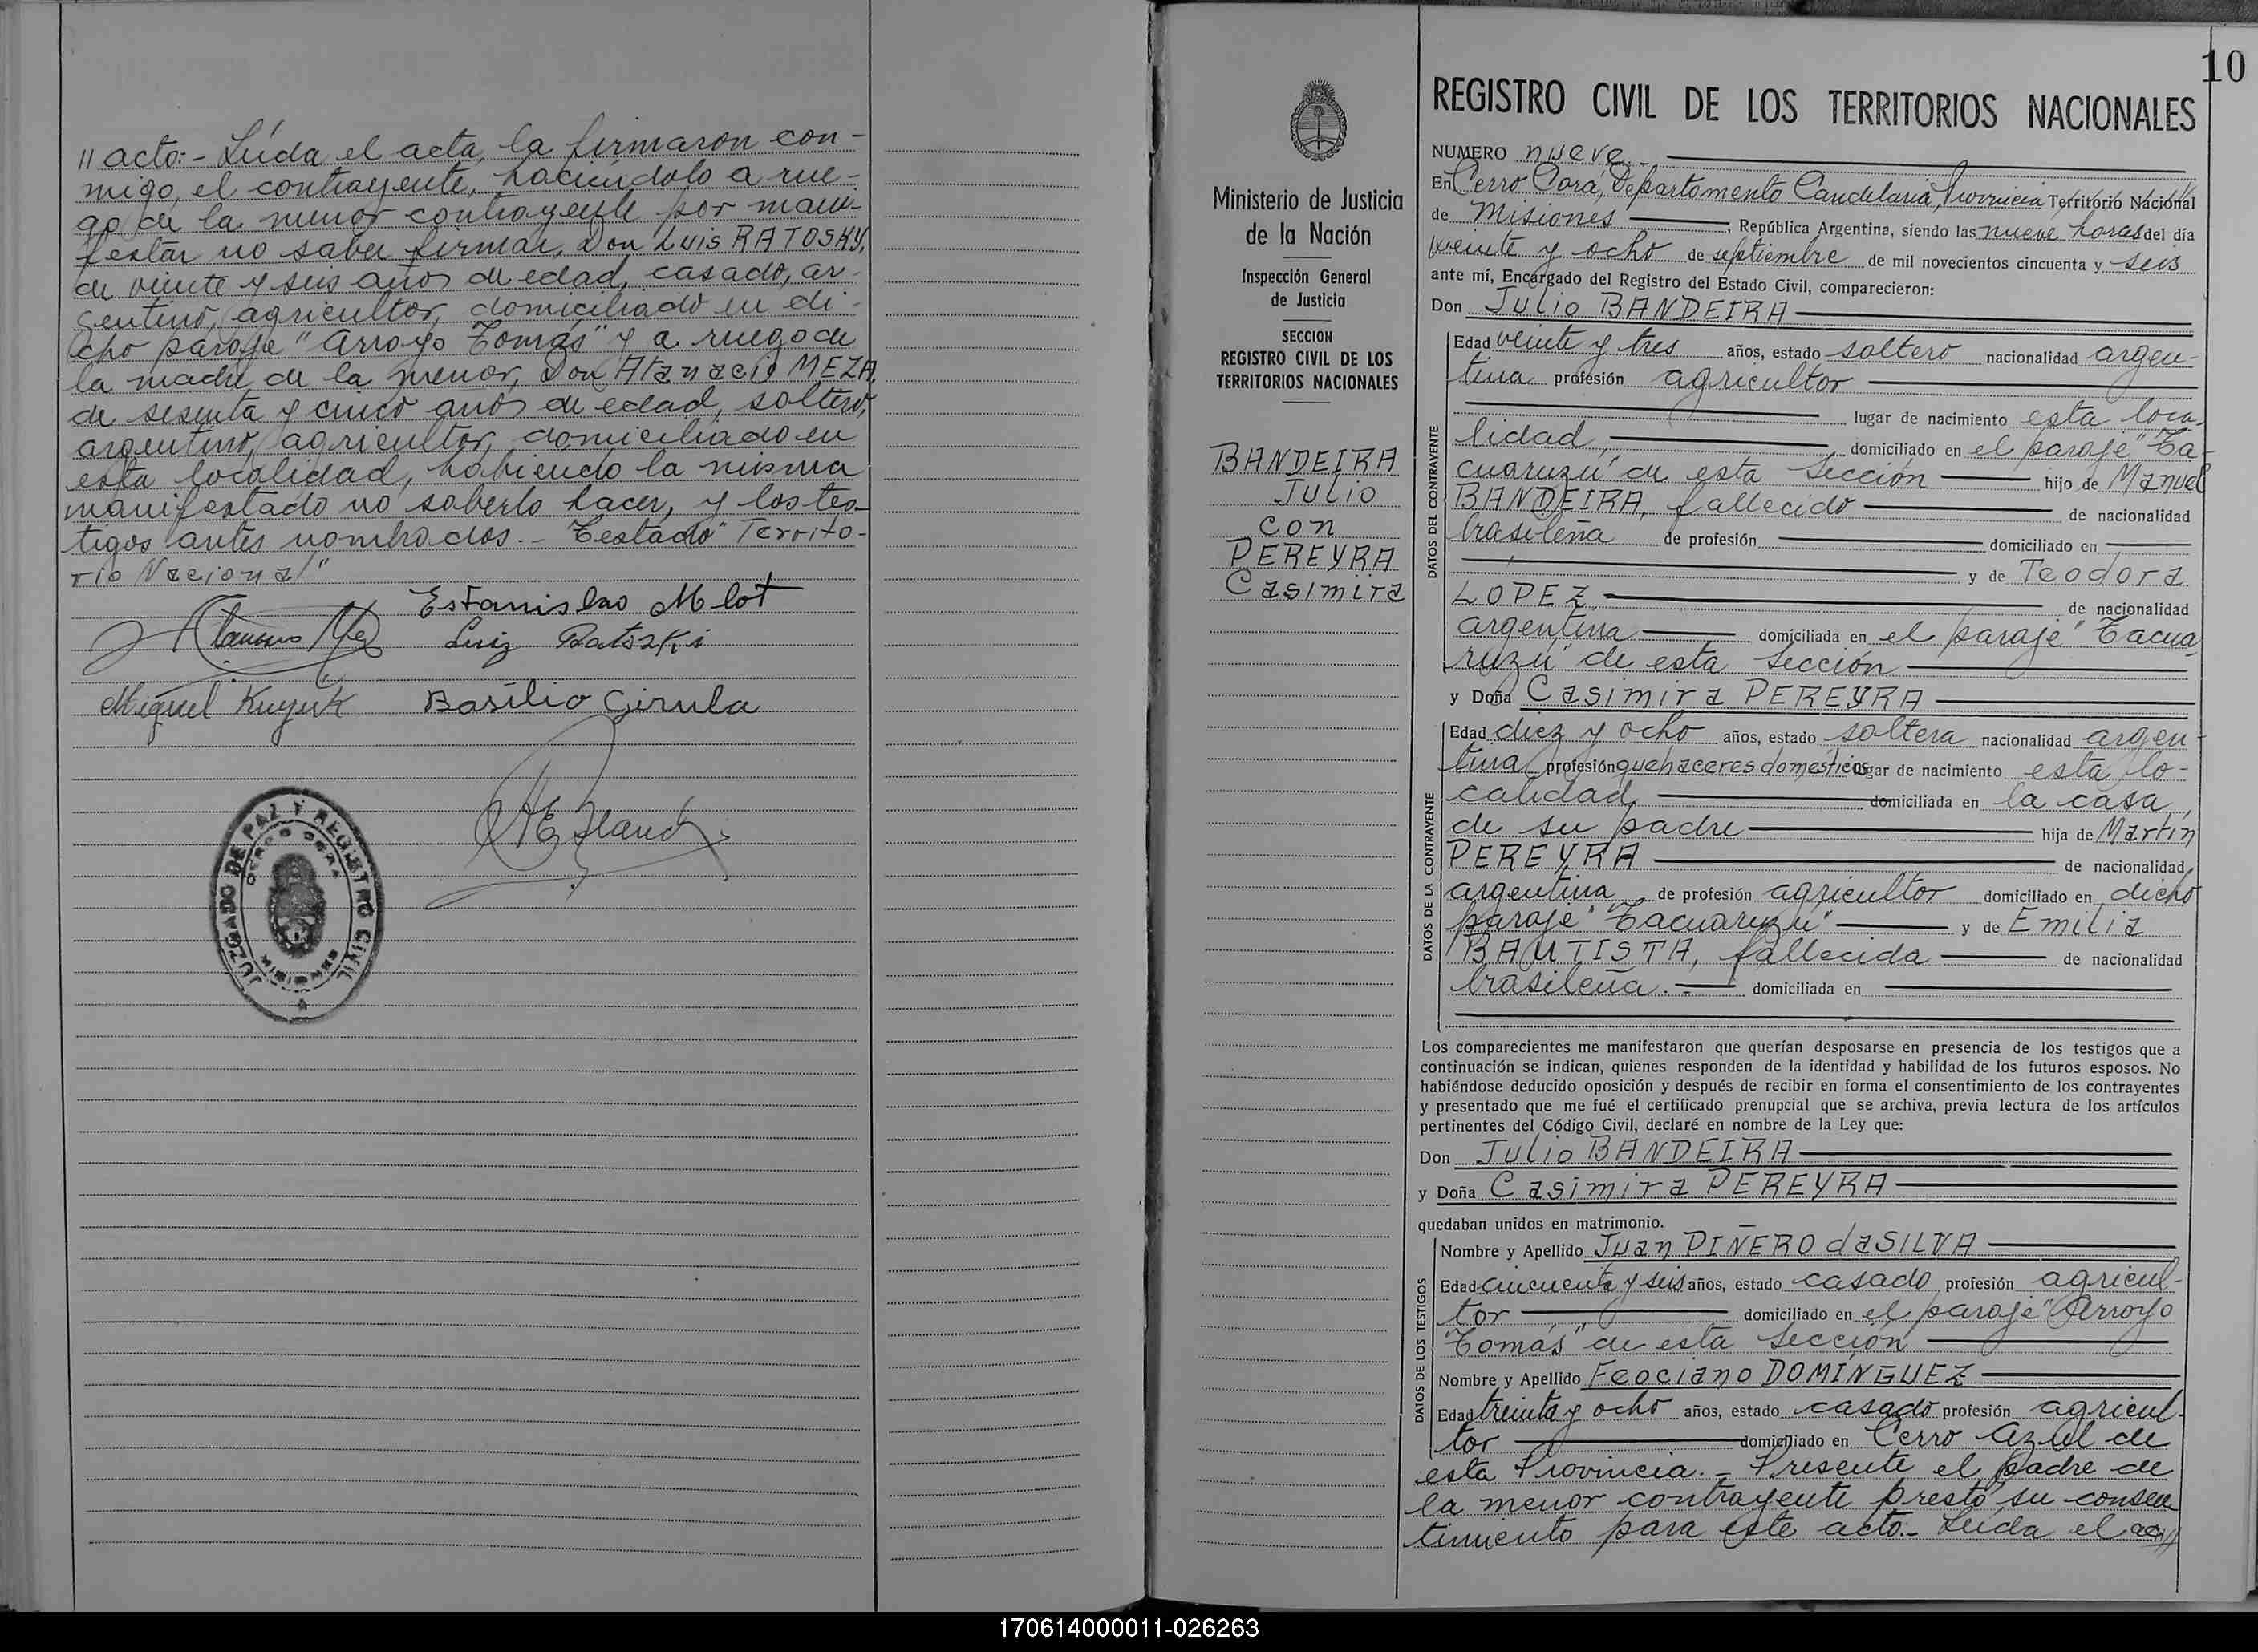 // acto:- Leída el acta, la firmaron con-
migo, el contrayente, haciéndolo a rue-
go de la menor contrayente por mani-
festar no saber firmar, Don Luis RATOSKY,
de veinte y seis años de edad, casado, ar-
gentino, agricultor, domiciliado en di-
cho paraje "Arroyo Tomás" y a ruego de
la madre de la menor, Don Atanacio MEZA,
de sesenta y cinco años de edad, soltero,
argentino, agricultor, domiciliado en
esta localidad, habiendo la misma
manifestado no saberlo hacer, y los tes-
tigos antes nombrados.- Testado "Territo-
rio Nacional"
Estanislao Mlot
Luiz Ratoszki
Miguel Kuyuk Basilio Girula
JUZGADO DE PAZ Y REGISTRO CIVIL
CERRO CORA
MISIONES
10
REGISTRO CIVIL DE LOS TERRITORIOS NACIONALES
Ministerio de Justicia
de la Nación
Inspección General
de Justicia
SECCION
REGISTRO CIVIL DE LOS
TERRITORIOS NACIONALES
BANDEIRA
Julio
con
PEREYRA
Casimira
NUMERO nueve.-
En Cerro Corá, Departamento Candelaria, Provincia Territorio Nacional
de Misiones, República Argentina, siendo las nueve horas del día
veinte y ocho de septiembre de mil novecientos cincuenta y seis
ante mí, Encargado del Registro del Estado Civil, comparecieron:
Don Julio BANDEIRA
DATOS DEL CONTRAYENTE
Edad veinte y tres años, estado soltero nacionalidad argen-
tina profesión agricultor
lugar de nacimiento esta loca-
lidad, domiciliado en el paraje "Ta-
cuaruzú" de esta Sección hijo de Manuel
BANDEIRA, fallecido de nacionalidad
brasileña de profesión domiciliado en
y de Teodora
LOPEZ, de nacionalidad
argentina domiciliada en el paraje "Tacua
ruzú" de esta Sección
y Doña Casimira PEREYRA
DATOS DE LA CONTRAYENTE
Edad diez y ocho años, estado soltera nacionalidad argen-
tina profesión quehaceres domésticos lugar de nacimiento esta lo-
calidad, domiciliada en la casa
de su padre hija de Martín
PEREYRA de nacionalidad
argentina de profesión agricultor domiciliado en dicho
paraje "Tacuaruzú" y de Emilia
BAUTISTA, fallecida de nacionalidad
brasileña.- domiciliada en
Los comparecientes me manifestaron que querían desposarse en presencia de los testigos que a
continuación se indican, quienes responden de la identidad y habilidad de los futuros esposos. No
habiéndose deducido oposición y después de recibir en forma el consentimiento de los contrayentes
y presentado que me fué el certificado prenupcial que se archiva, previa lectura de los artículos
pertinentes del Código Civil, declaré en nombre de la Ley que:
Don Julio BANDEIRA
y Doña Casimira PEREYRA
quedaban unidos en matrimonio.
DATOS DE LOS TESTIGOS
Nombre y Apellido Juan PIÑERO daSILVA
Edad cincuenta y seis años, estado casado profesión agricul-
tor domiciliado en el paraje "Arroyo
Tomás" de esta Sección
Nombre y Apellido Feociano DOMINGUEZ
Edad treinta y ocho años, estado casado profesión agricul-
tor domiciliado en Cerro Azul de
esta Provincia.- Presente el padre de
la menor contrayente prestó su consen-
timiento para este acto.- Leída el ac//
170614000011-026263